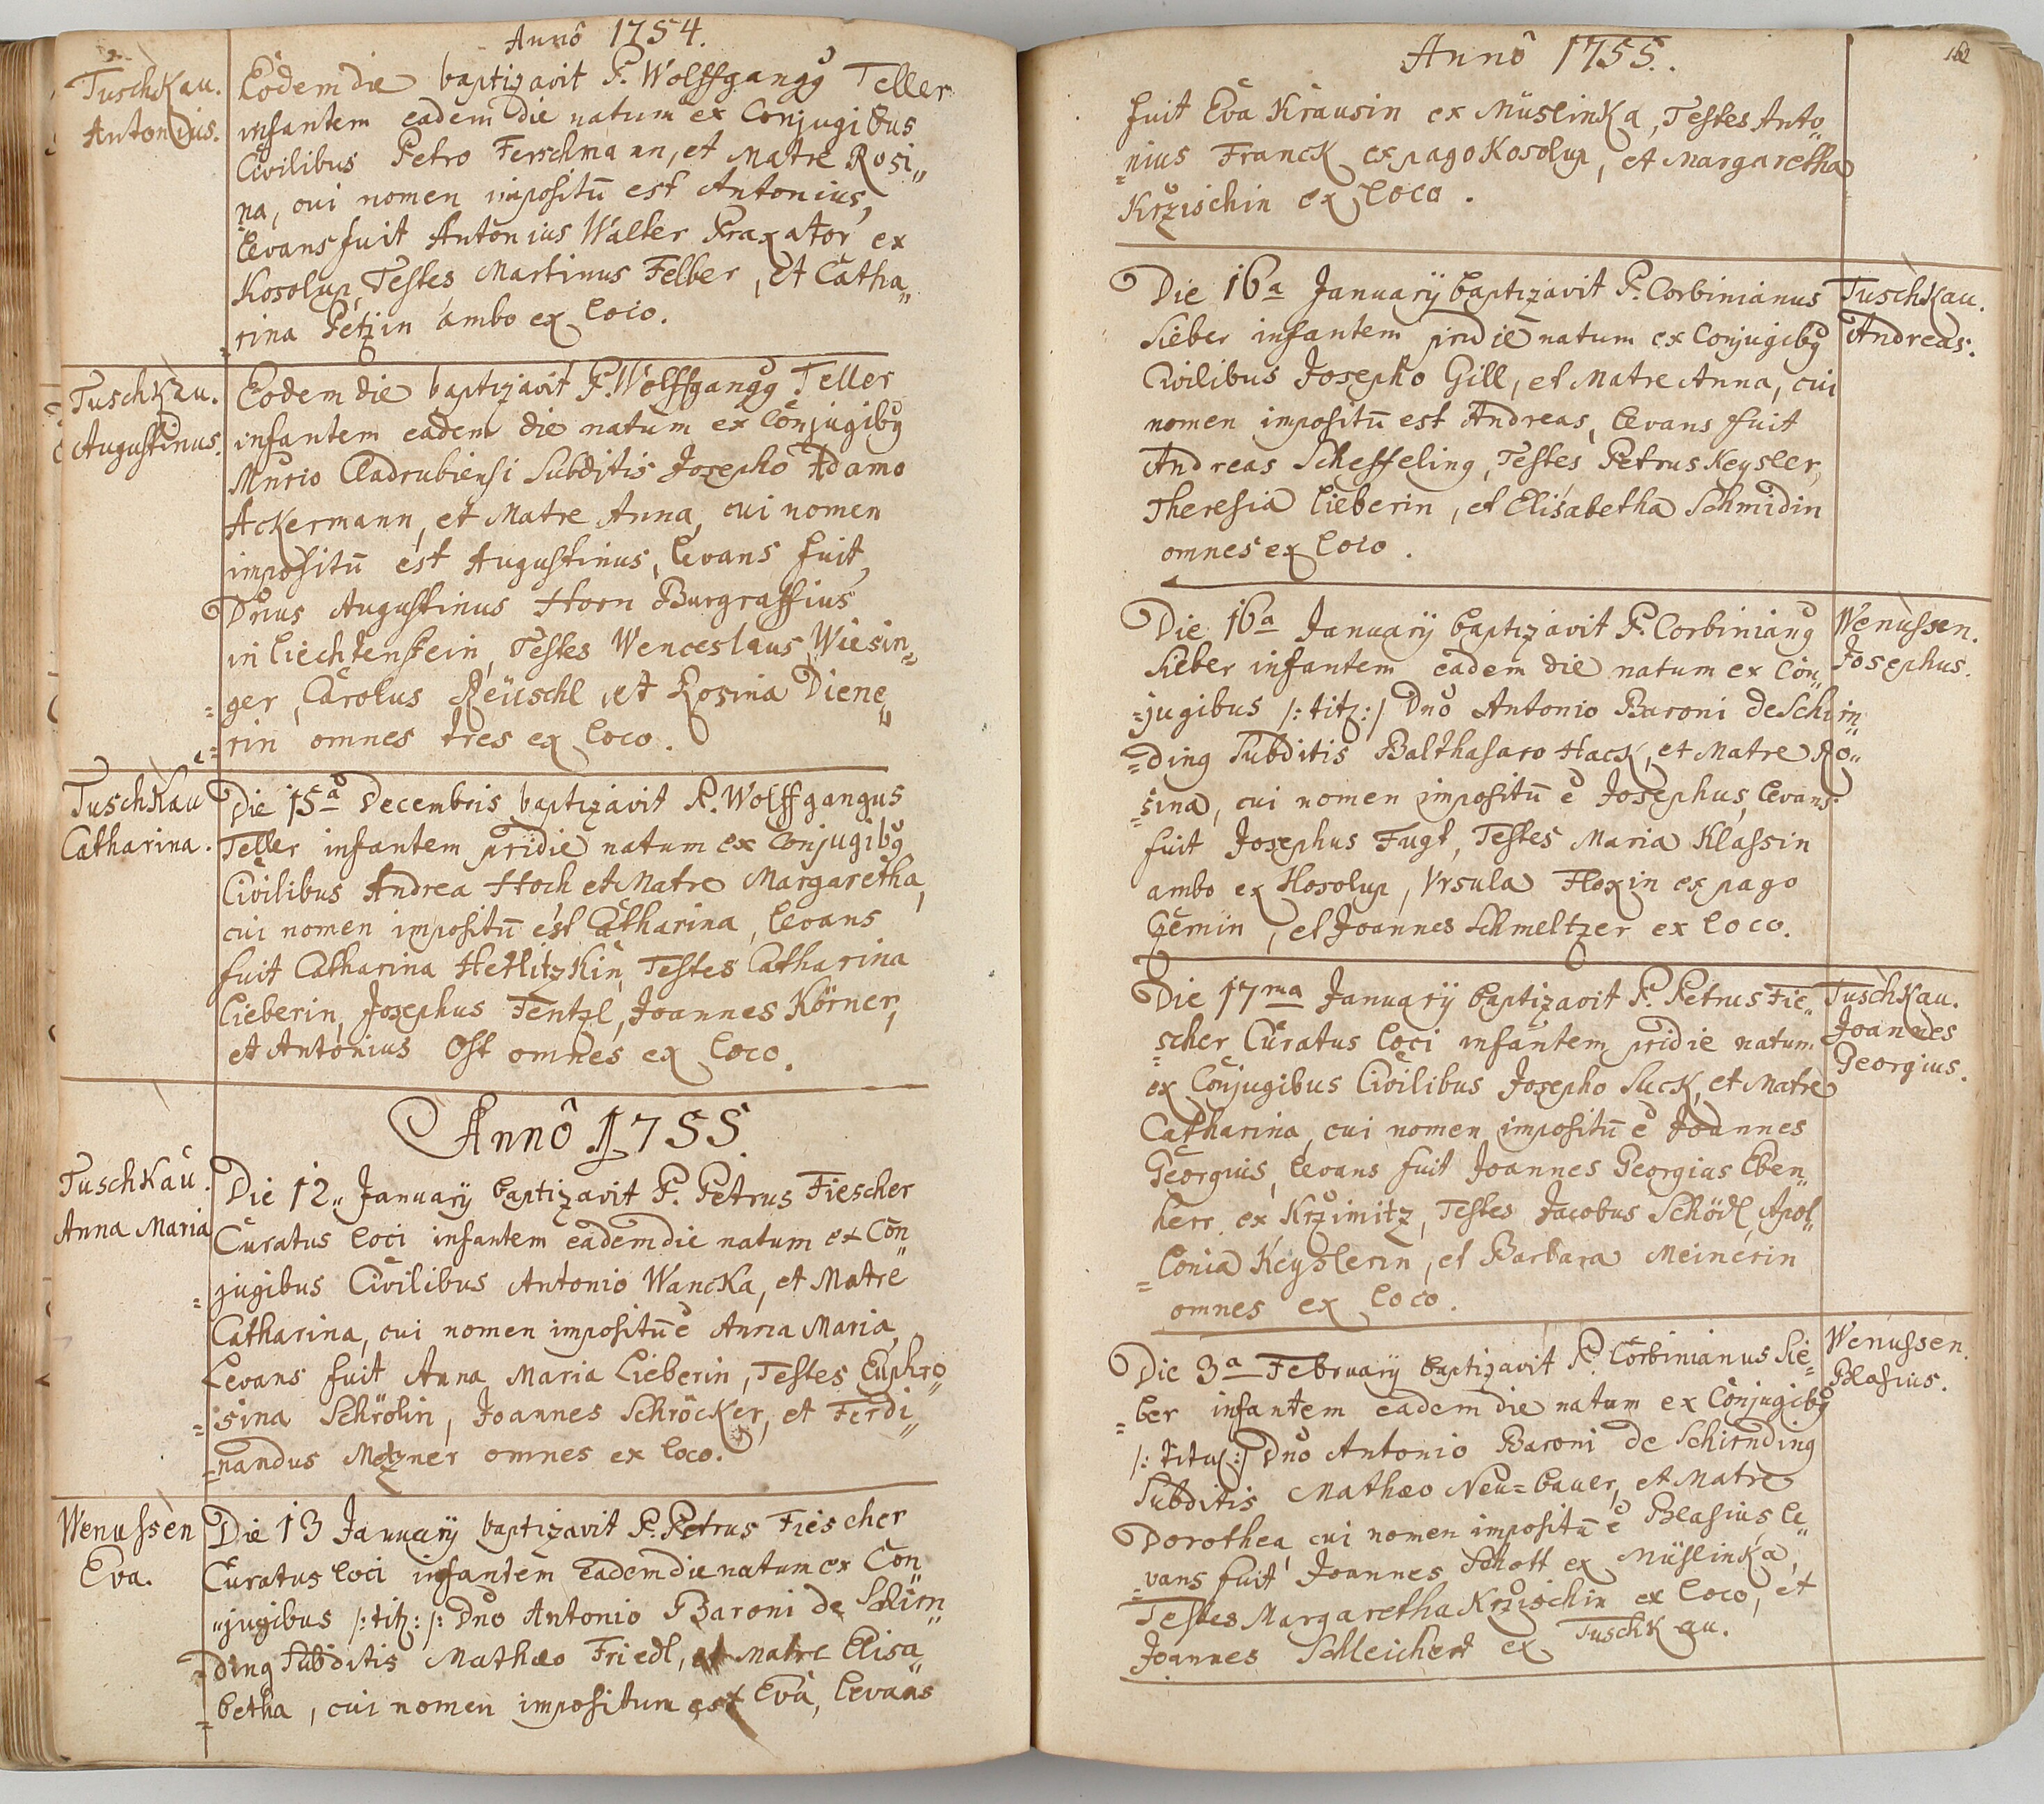 Annô 1754.
Tuschkau.
Antonius.
Eodem die baptizavit P. Wolffgangg Teller
infantem eadem die natum ex Conjugibus
Civilibus Petro Ferschmann, et Matre Rosi„
na, cui nomen impositū est Antonius,
levans fuit Antonius Walter Praxator ex
Kosolup, Testes Martinus Felber, et Catha„
rina Petzin ambo ex loco.
Tuschkau.
Augustinus.
Eodem die baptizavit P. Wolffgangg Teller
infantem eadem die natum ex Conjugibg
Murio Cladrubiensi Subditis Josepho Adamo
Ackermann, et Matre Anna, cui nomen
impositū est Augustinus, levans fuit,
Dnus Augustinus Horn Burgraffius
in Liechtenstein, Testes Wenceslaus Wiesin„
=ger, Carolus Reüschl, et Rosina Diene„
=rin omnes tres ex loco.
Tuschkau
Catharina.
Die 15a Decembris baptizavit P. Wolffgangus
Teller infantem pridie natum ex Conjugibg
Civilibus Andrea Hoch et Matre Margaretha,
cui nomen impositū est Catharina, levans
fuit Catharina Hetlitzkin, Testes Catharina
Lieberin, Josephus Fentzl, Joannes Körner,
et Antonius Ost omnes ex loco.
Annô 1755.
Tuschkau.
Anna Maria
Die 12„ Januarÿ baptizavit P. Petrus Fiescher
Curatus loci infantem eadem die natum ex Con„
=jugibus Civilibus Antonio Wancka, et Matre
Catharina, cui nomen impositū ē Anna Maria,
Levans fuit Anna Maria Lieberin, Testes Euphro„
=sina Schrölin, Joannes Schröcker, et Ferdi„
=nandus Metzner omnes ex loco.
Wenussen
Eva.
Die 13 Januarÿ baptizavit P. Petrus Fiescher
Curatus loci infantem eadem die natum ex Con„
„jugibus /: titz: /: Dno Antonio Baroni de Schirn„
=ding Subditis Mathæo Friedl, et Matre Elisa„
=betha, cui nomen impositum est Eva, levans
Annô 1755.
162
fuit Eva Krausin ex Müslinka, Testes Anto„
=nius Franck ex pago Kosolup, et Margaretha
Krzischin ex loco.
Die 16a Januarÿ baptizavit P. Corbinianus
Sieber infantem pridie natum ex Conjugibg
Civilibus Josepho Gill, et Matre Anna, cui
nomen impositū est Andreas, levans fuit
Andreas Scheffeling, Testes Petrus Keysler,
Theresia Lieberin, et Elisabetha Schmidin
omnes ex loco.
Tuschkau.
Andreas.
Die 16a Januarÿ baptizavit P. Corbiniang
Sieber infantem eadem die natum ex Con„
=jugibus /: titz: / Dno Antonio Baroni de Schirn„
=ding Subditis Balthasaro Hack, et Matre Ro„
=sina, cui nomen impositū ē Josephus, levans
fuit Josephus Fugt, Testes Maria Klassin
ambo ex Hosolup, Vrsula Floxin ex pago
Gemin, et Joannes Schmeltzer ex loco.
Wenussen.
Josephus.
Die 17ma Januarÿ baptizavit P. Petrus Fie„
=scher Curatus loci infantem pridie natum
ex Conjugibus Civilibus Josepho Suck, et Matre
Catharina, cui nomen impositū ē Joannes
Georgius, levans fuit Joannes Georgius Eben„
herr ex Krzimitz, Testes Jacobus Schödl, Apol„
=lonia Keyslerin, et Barbara Meinerin
omnes ex loco.
Tuschkau.
Joannes
Georgius.
Die 3a February baptizavit P. Corbinianus Sie=
=ber infantem eadem die natum ex Conjugibg
/: titul: / Dno Antonio Baroni de Schirnding
Subditis Mathæo Neu=bauer, et Matre
Dorothea, cui nomen impositū ē Blasius, le„
=vans fuit Joannes Schott ex Müslinka,
Testes Margaretha Krzischin ex loco, et
Joannes Schleichert ex Tuschkau.
Wenussen.
Blasius.